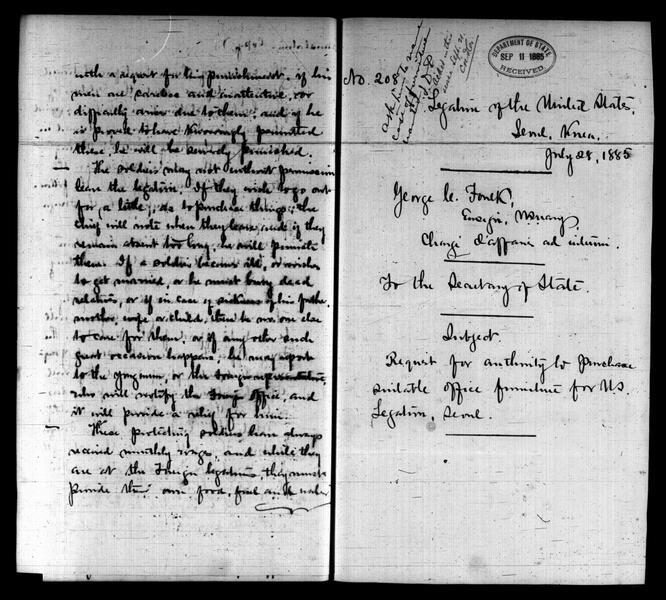 with a request for his punishment. if his
men are careless and inattentive, or
difficulty arise due to them; and if he
is proved to have knowingly permitted
these, he will be severely punished.
The soldiers may not without permission
leave the legation. If they wish to go out
for a little, as to purchase things, the
chief will note when they leave, and if they
remain absent too long, he will punish
them. If a soldier become ill, or wishes
to get married, or he must bury dead
relatives, or if in case of sickness of his father,
mother, wife or child, there be no one else
to care for them, or if any other such
great occasion happens, he may report
to the or the foreign representative,
who will notify the Foreign Office, and
it will provide a relief for him.
These protecting soldiers have always
received monthly wages, and while they
are at the Foreign legations, they must
provide their own food, fuel and
No. 208
DEPARTMENT OF STATE
SEP 11 1885
RECEIVED
Legation of the United States,
Seoul, Korea,
July 28, 1885
George C. Foulk,
Ensign, U.S. Navy,
Chargé d'affaires ad interim.
To the Secretary of State.
Subject.
Request for authority to purchase
suitable office furniture for U.S.
Legation, Seoul.